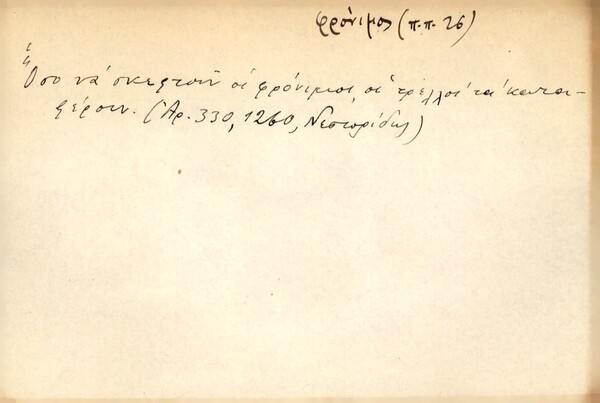 φρόνιμος (π.π. 26)
Ὅσο νὰ σκεφτοῦν οἱ φρόνιμοι, οἱ τρελλοὶ τὰ κατα-
φέρουν. (Ἀρ. 330, 1260, Νεστορίδης)